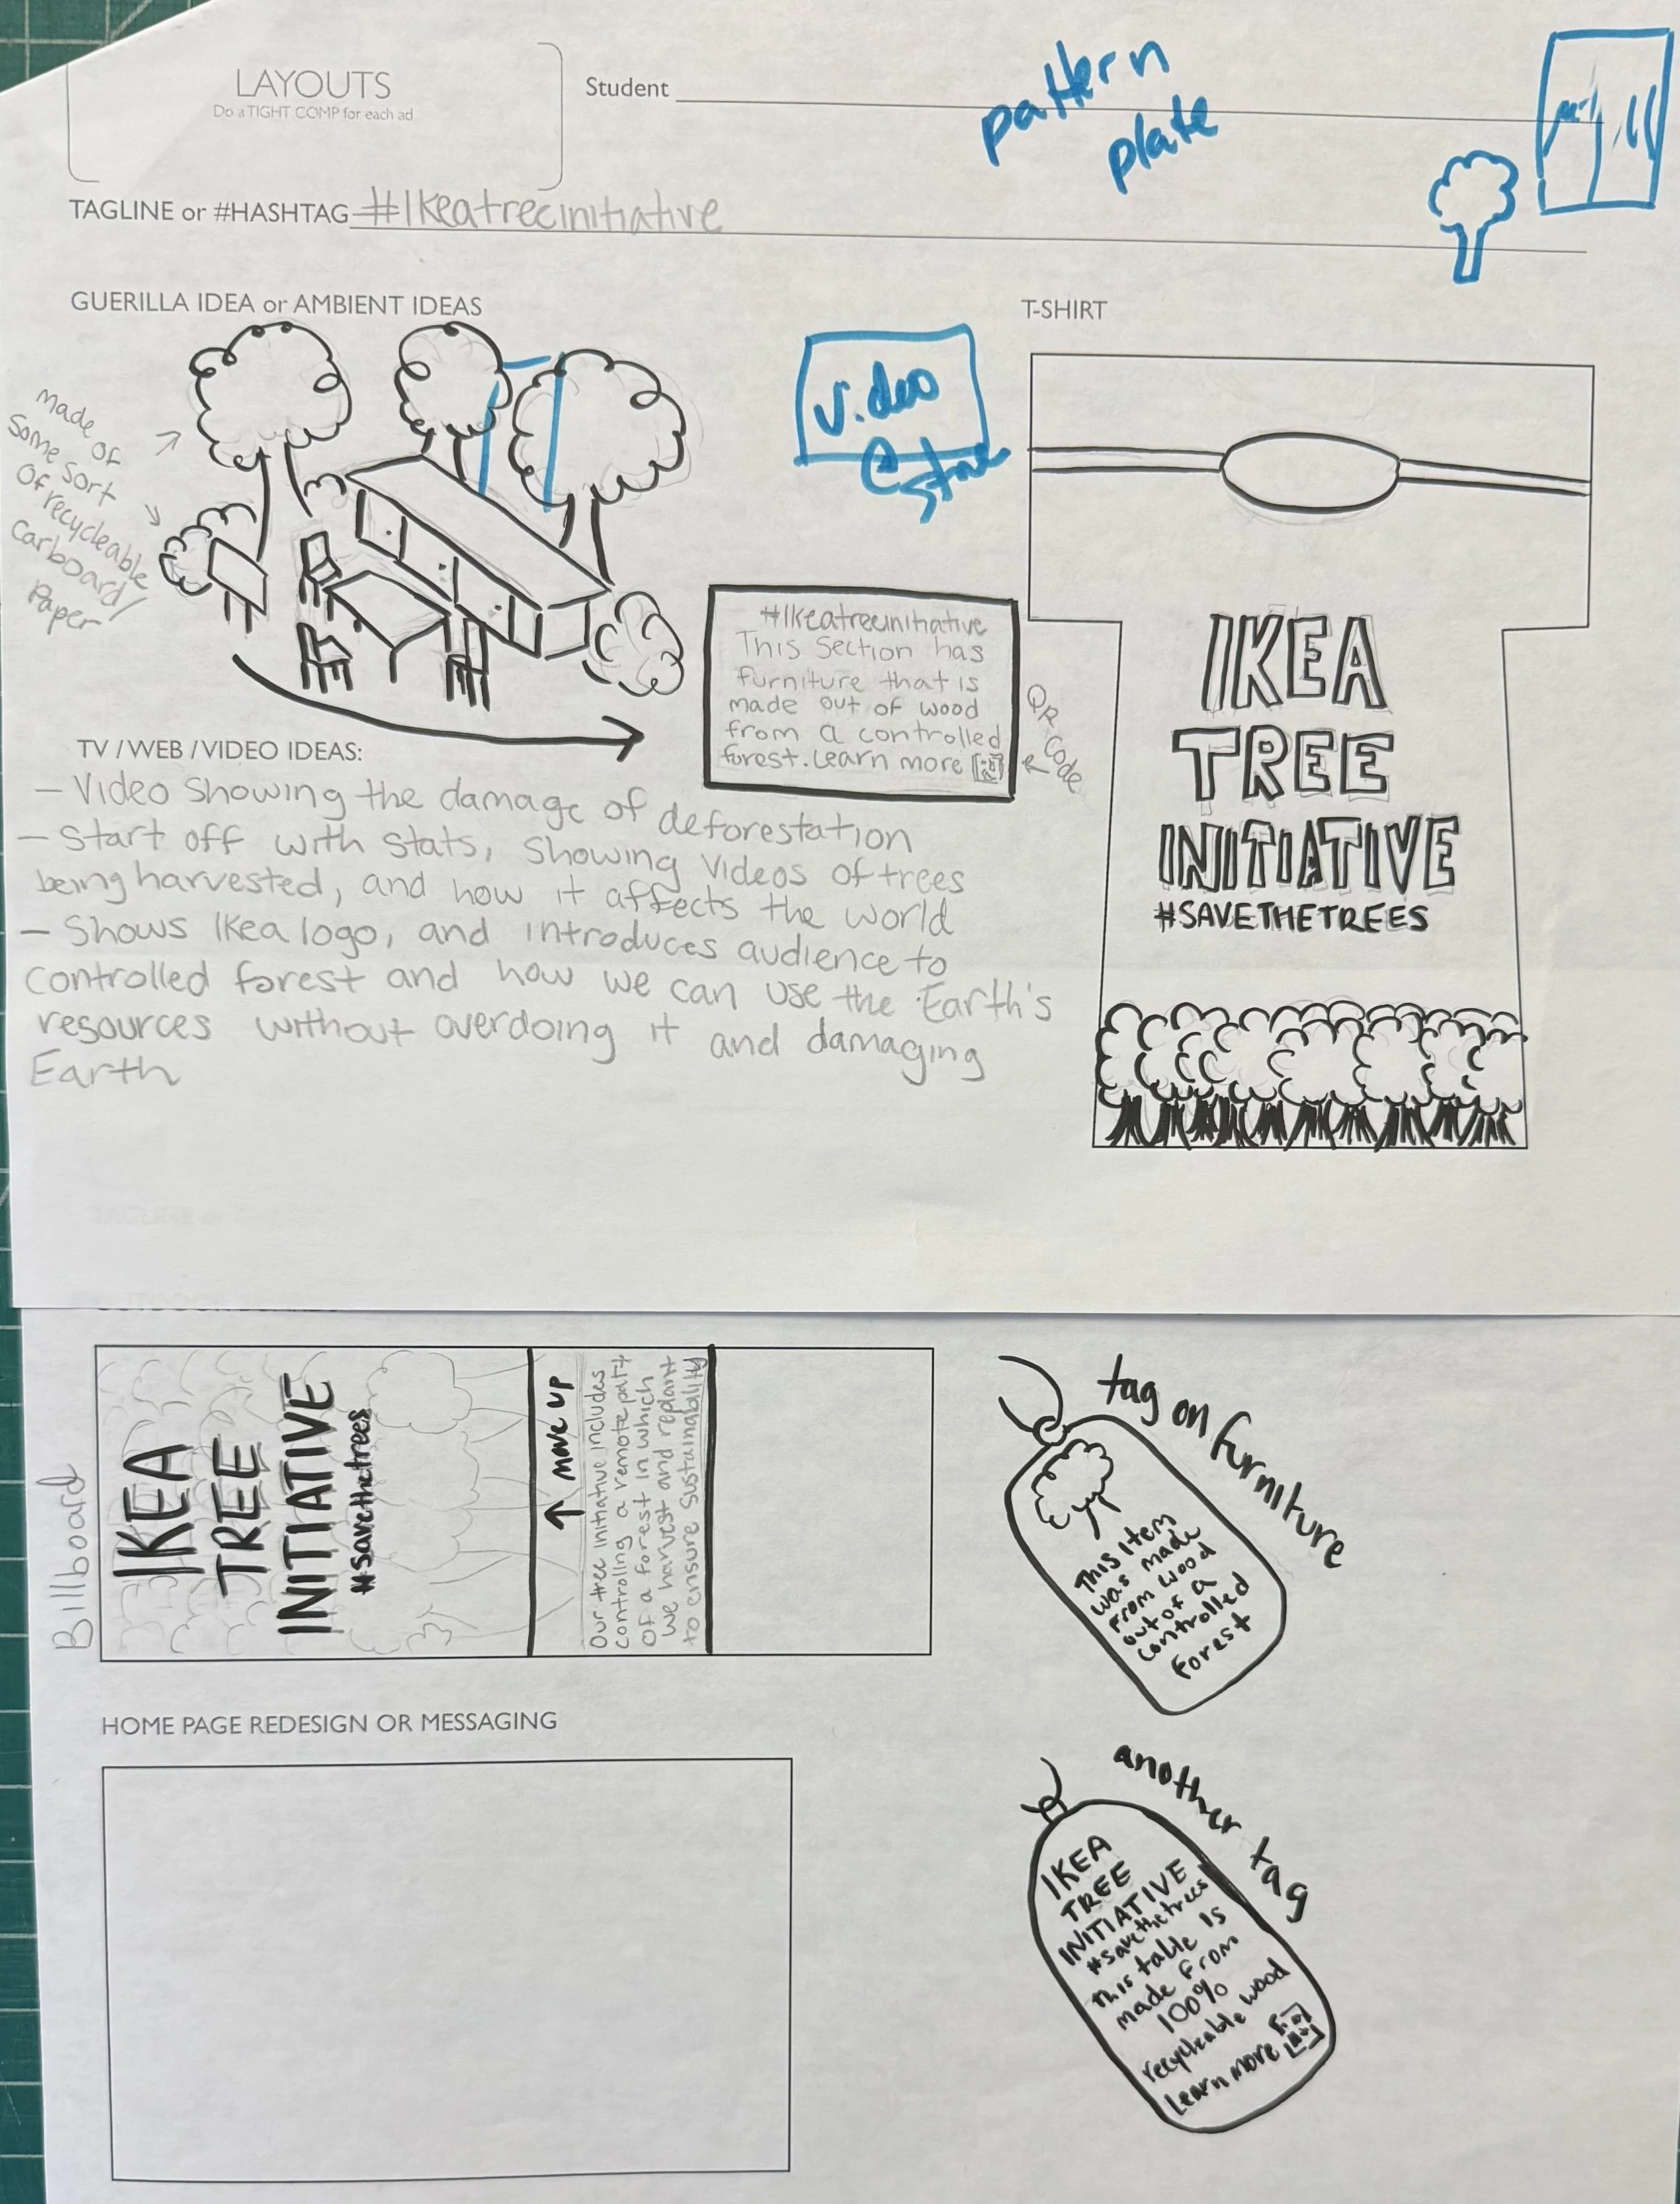 LAYOUTS
Do a TIGHT COMP for each ad
Student
pattern
plate
TAGLINE or #HASHTAG #Ikeatreeinitiative
GUERILLA IDEA or AMBIENT IDEAS
made of
some sort
of recycleable
carboard/
Paper
Video
@ store
#Ikeatreeinitiative
This Section has
furniture that is
made out of wood
from a controlled
forest. Learn more
QR code
T-SHIRT
IKEA
TREE
INITIATIVE
#SAVETHETREES
TV / WEB / VIDEO IDEAS:
- Video Showing the damage of deforestation
- Start off with stats, showing videos of trees
being harvested, and how it affects the world
- Shows Ikea logo, and introduces audience to
controlled forest and how we can use the Earth's
resources without overdoing it and damaging
Earth
Billboard
IKEA
TREE
INITIATIVE
#savethetrees
↑ move up
Our tree initiative includes
controling a remote part
of a forest in which
we harvest and replant
to ensure sustainability
tag on furniture
This item
was made
from wood
out of a
controlled
forest
HOME PAGE REDESIGN OR MESSAGING
another tag
IKEA
TREE
INITIATIVE
#savethetrees
this table is
made from
100%
recycleable wood
Learn more